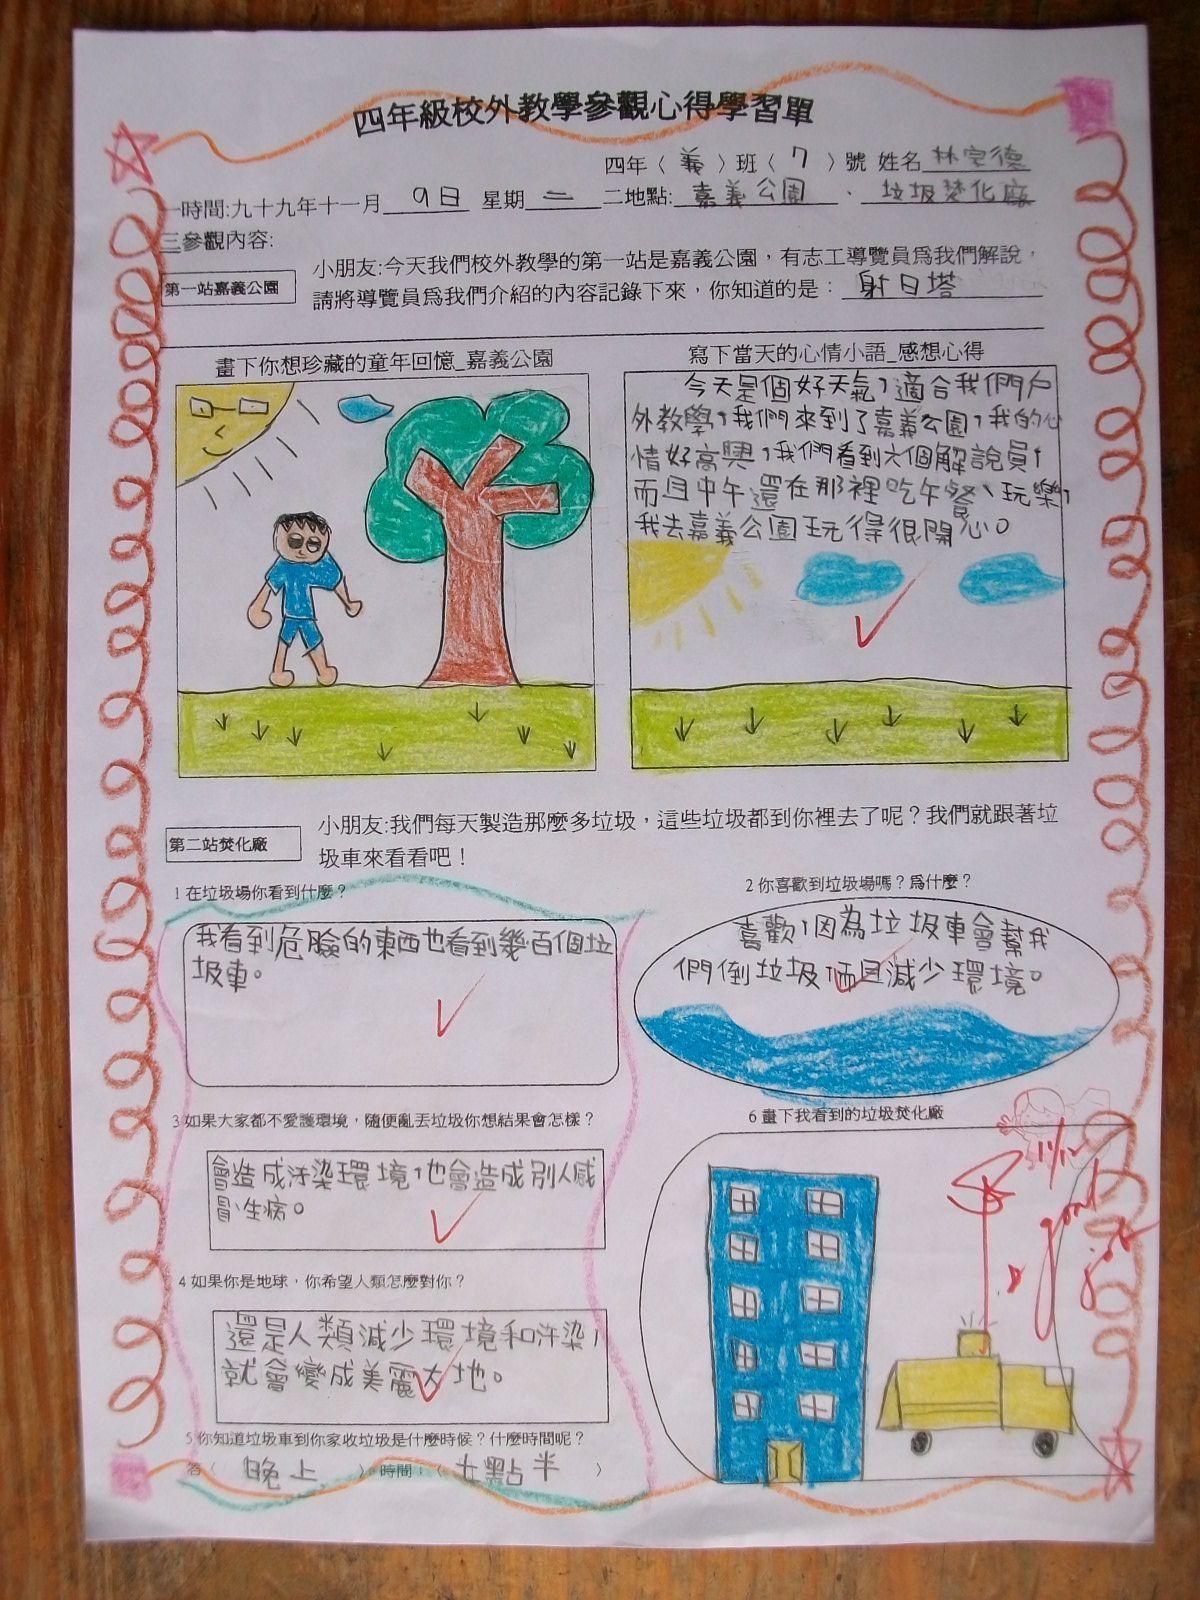 四年級校外教學參觀心得學習單
四年（義）班（7）號 姓名林宅德
一時間:九十九年十一月 9日 星期二 二地點:嘉義公園、垃圾焚化廠
三參觀內容:
第一站嘉義公園
小朋友:今天我們校外教學的第一站是嘉義公園，有志工導覽員為我們解說，
請將導覽員為我們介紹的內容記錄下來，你知道的是：射日塔
畫下你想珍藏的童年回憶_嘉義公園
寫下當天的心情小語_感想心得
今天是個好天氣，適合我們戶
外教學，我們來到了嘉義公園，我的心
情好高興，我們看到六個解說員，
而且中午還在那裡吃午餐、玩樂，
我去嘉義公園玩得很開心。
第二站焚化廠
小朋友:我們每天製造那麼多垃圾，這些垃圾都到你裡去了呢？我們就跟著垃
圾車來看看吧！
1 在垃圾場你看到什麼？
我看到危險的東西也看到幾百個垃
圾車。
2 你喜歡到垃圾場嗎？為什麼？
喜歡，因為垃圾車會幫我
們倒垃圾，而且減少環境。
3 如果大家都不愛護環境，隨便亂丟垃圾你想結果會怎樣？
會造成汙染環境，也會造成別人感
冒、生病。
4 如果你是地球，你希望人類怎麼對你？
還是人類減少環境和汙染，
就會變成美麗大地。
5 你知道垃圾車到你家收垃圾是什麼時候？什麼時間呢？
答（晚上）時間：（七點半）
6 畫下我看到的垃圾焚化廠
11/12
good
job